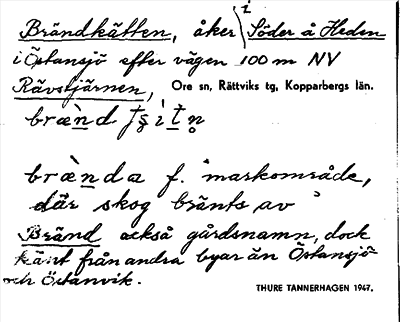 Brändkätten, åker i Söder å Heden
i Östansjö efter vägen 100 m NV
Rävstjärnen, Ore sn, Rättviks tg, Kopparbergs län.
brænd
brænda f. "markområde,
där skog bränts av"
Bränd också gårdsnamn, dock
känt från andra byar än Östansjö
och Östanvik.
THURE TANNERHAGEN 1947.